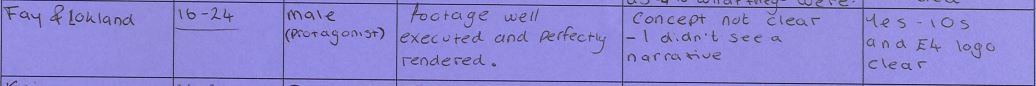 Fay & Lokland
16-24
male
(protagonist)
footage well
executed and perfectly
rendered.
Concept not clear
- I didn't see a
narrative
Yes - 10s
and E4 logo
clear